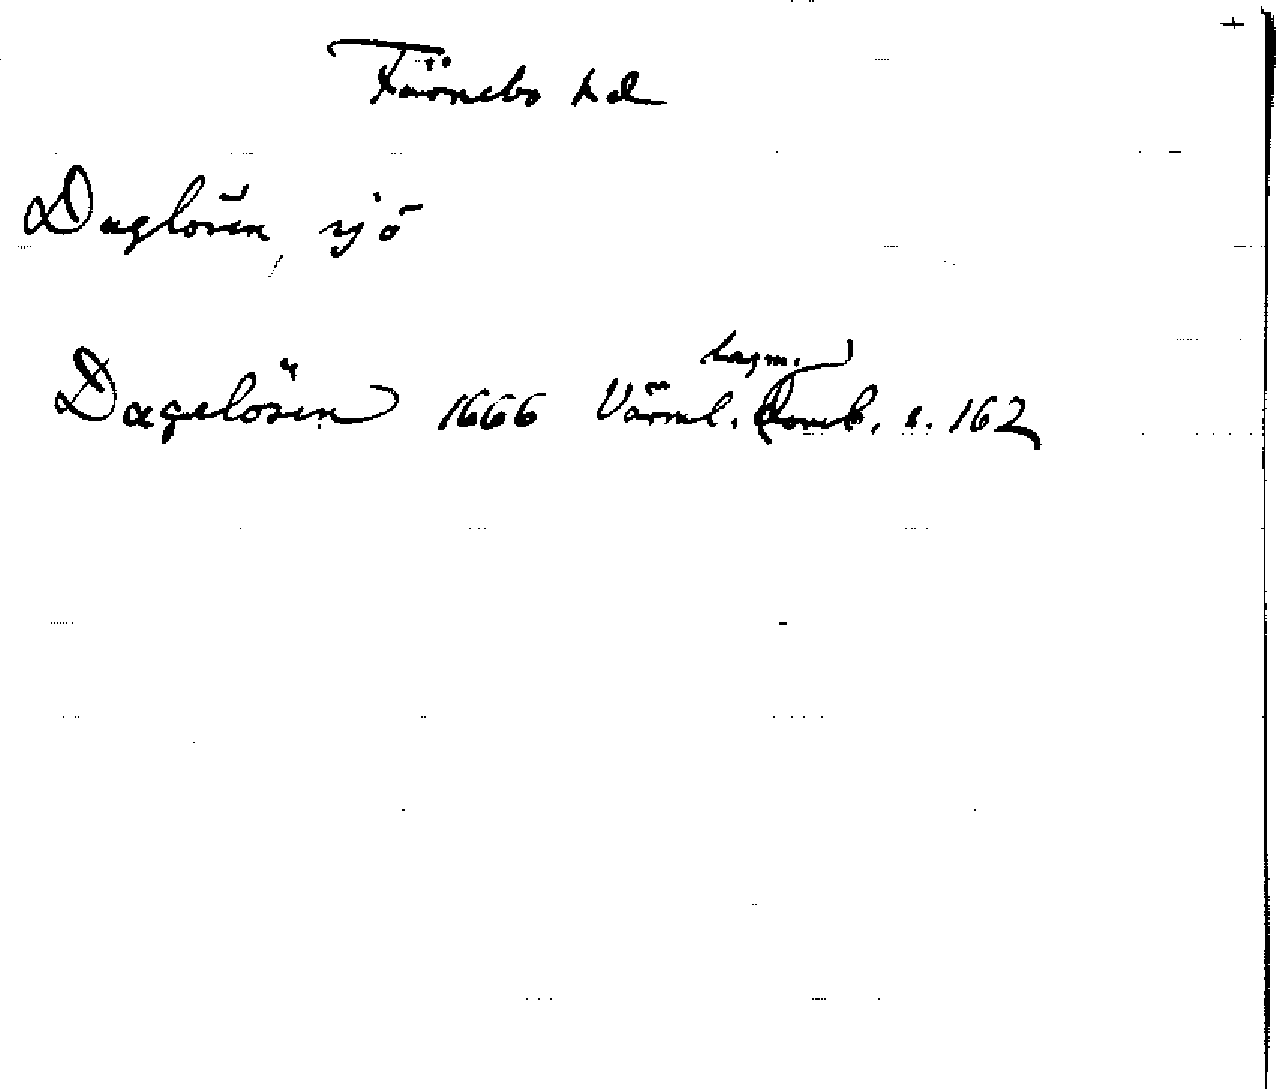 Färnebo hd
Daglösen, sjö
Dagelösen 1666 Värml. lagm. domb. s. 162